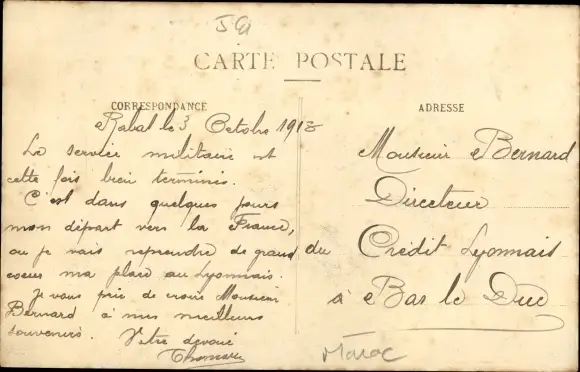 CARTE POSTALE
CORRESPONDANCE
Rabat le 3 Octobre 1913
Le service militaire est
cette fois bien terminés.
C'est dans quelques jours
mon départ vers la France,
ou je vais reprendre de grand
coeur ma place au Lyonnais.
Je vous prie de croire Monsieur
Bernard à mes meilleurs
souvenirs. Votre dévoué
ADRESSE
Monsieur Bernard
Directeur
du Crédit Lyonnais
à Bar le Duc
Maroc